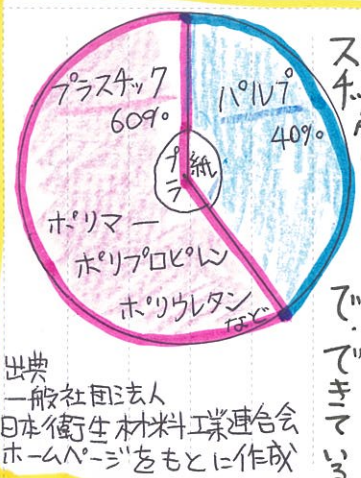 プラスチック
60%
パルプ
40%
プラ
紙
ポリマー
ポリプロピレン
ポリウレタン
など
スチッ
で、できている
出典
一般社団法人
日本衛生材料工業連合会
ホームページをもとに作成